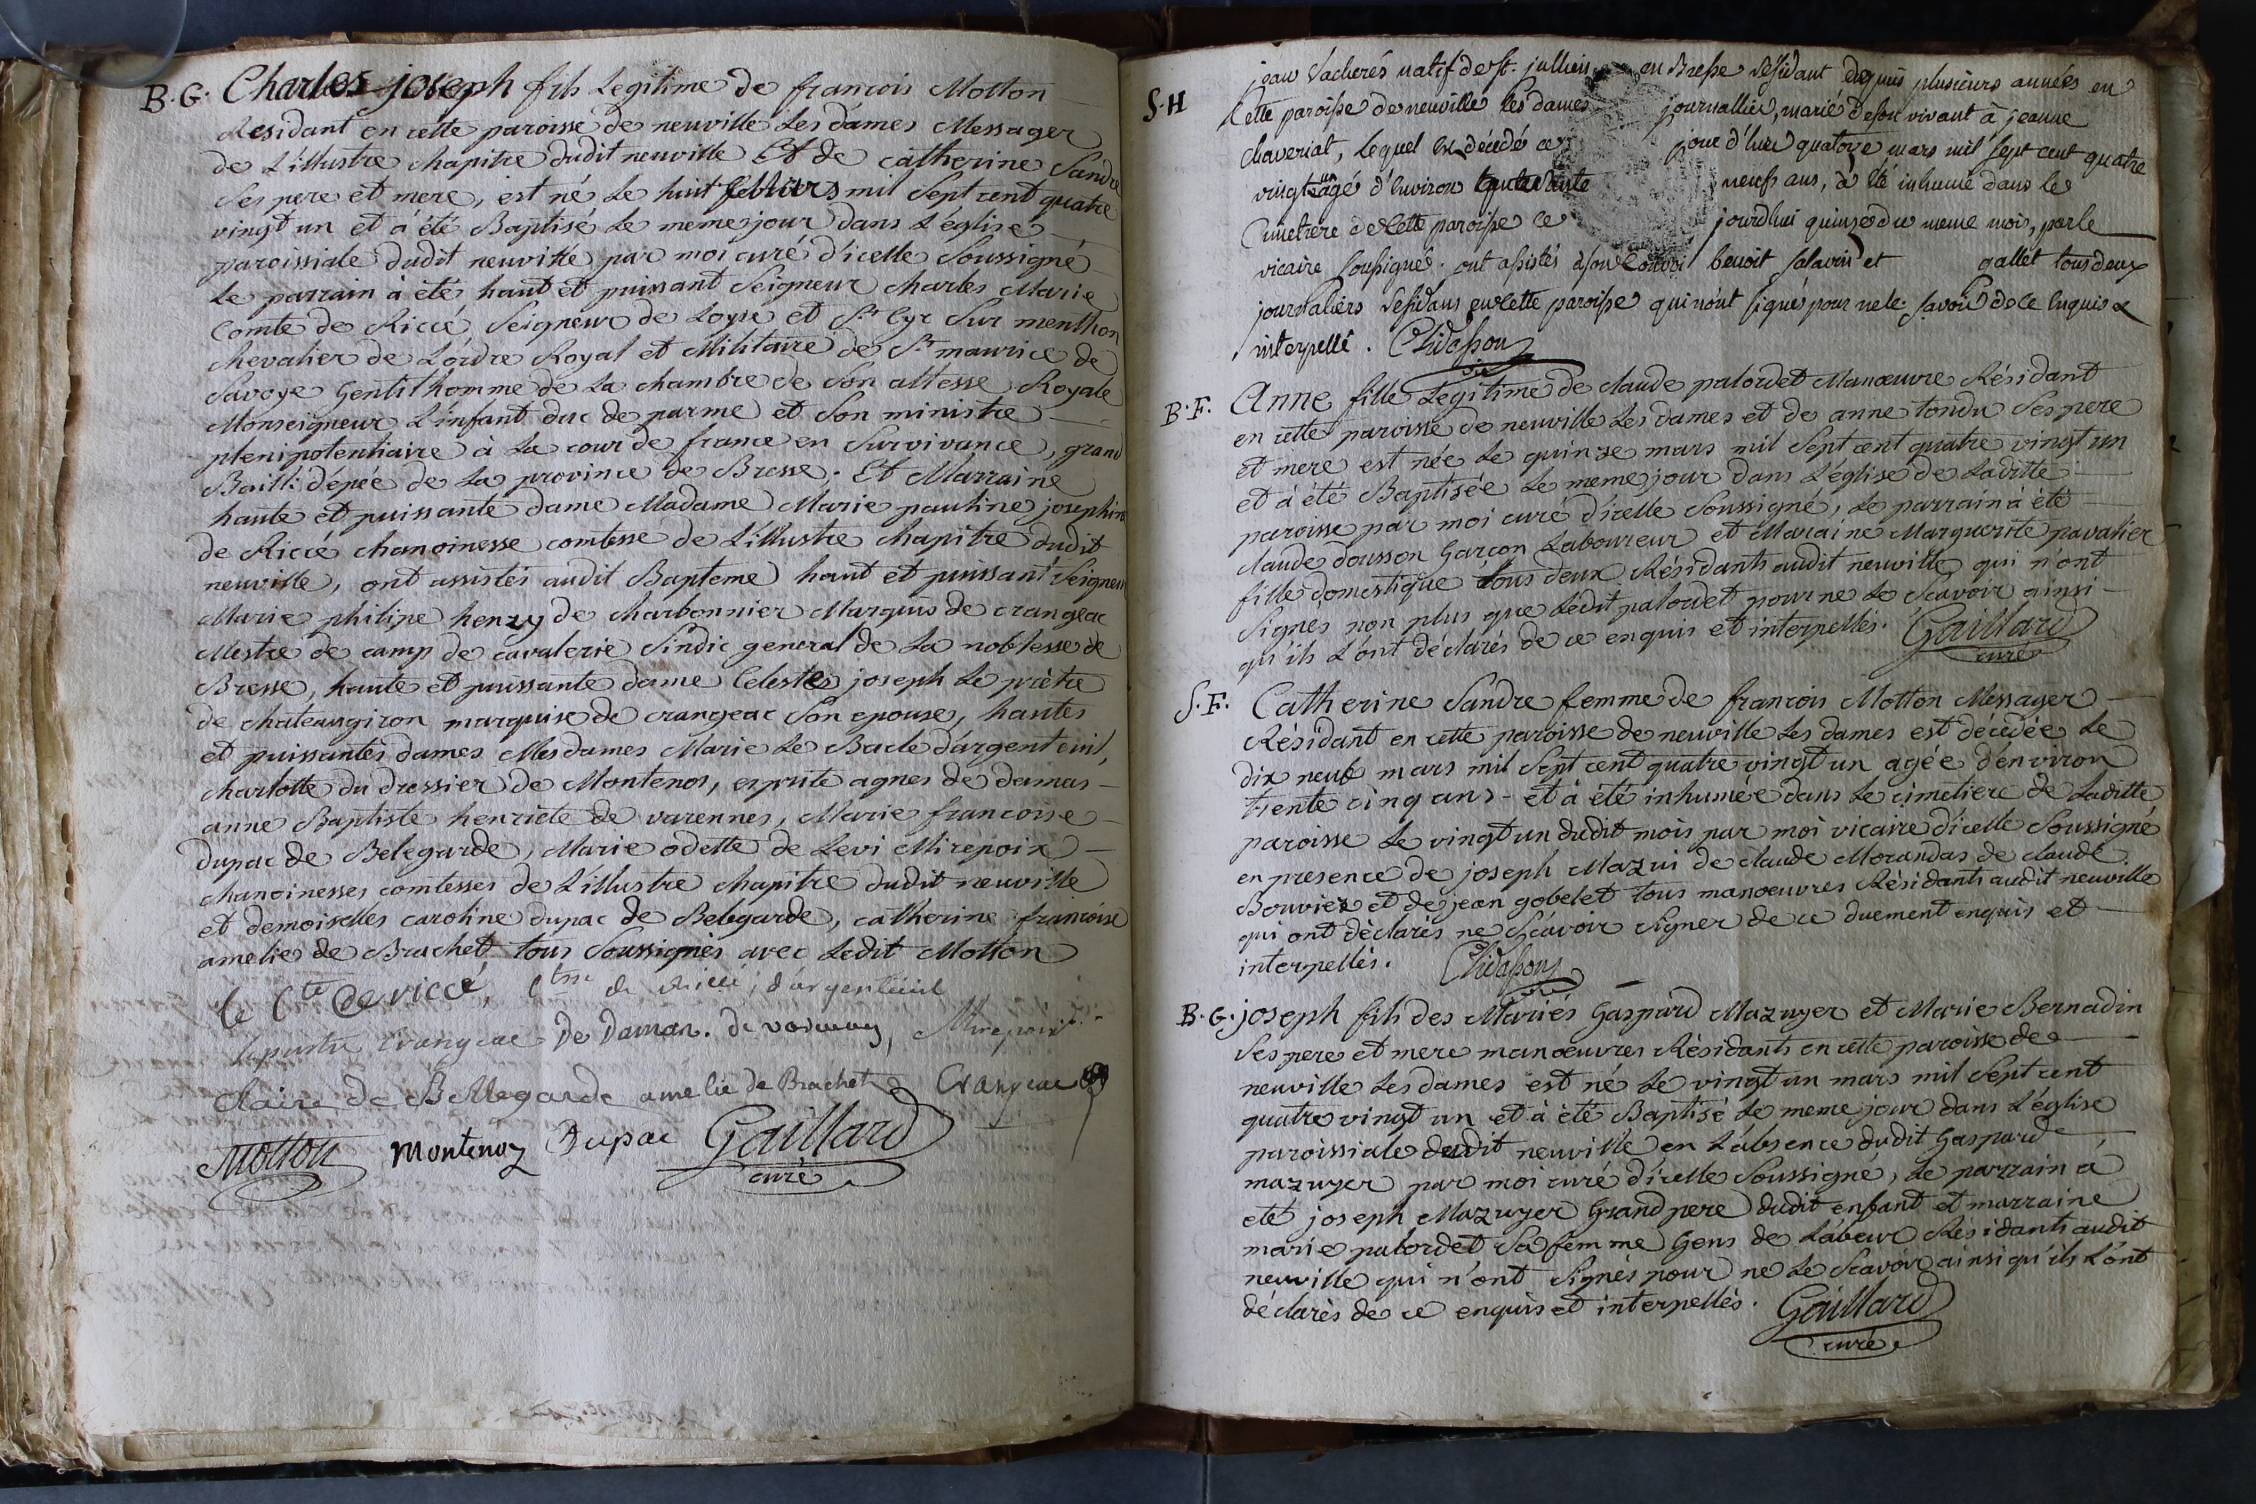 B.G. Charles joseph fils Legitime de francois Motton
Residant en cette paroisse de neuville Les dames Messager
de L'illustre chapitre dudit neuville Et de catherine Sandre
Ses pere et mere, est né Le huit febvriers mil Sept cent quatre
vingt un et à été Baptisé Le meme jour dans L'église
paroissiale dudit neuville par moi curé d'icelle Soussigné
Le parrain à été haut et puissant Seigneur charles Marie
Comte de Riccé Seigneur de Loyse et St Cyr Sur menthon
chevalier de L'ordre Royal et Militaire de St maurice de
Savoye Gentilhomme de La chambre de Son altesse Royale
Monseigneur L'infant duc de parme et Son ministre
plenipotentiaire à La cour de france en Survivance, grand
Bailli d'épée de La province de Bresse. Et Marraine
haute et puissante dame Madame Marie pauline josephine
de Riccé chanoinesse comtesse de L'illustre chapitre dudit
neuville, ont assistés audit Bapteme haut et puissant Seigneur
Marie philipe henry de charbonnier Marquis de crangeac
Mestre de camp de cavalerie Sindic general de La noblesse de
Bresse, haute et puissante dame Celeste joseph Le prètre
de chateaugiron marquise de crangeac Son epouse, hautes
et puissantes dames Mesdames Marie Le Bacle d'argenteuil,
charlotte du dressier de Montenos, esprite agnes de damas
anne Baptiste henriete de varennes, Marie francoise
dupac de Belegarde, Marie odette de Levi Mirepoix
chanoinesses comtesses de L'illustre chapitre dudit neuville
et demoiselles caroline dupac de Belegarde, catherine francoise
amelie de Brachet tous Soussignés avec Ledit Motton
le Cte de riccé, Ctesse de Riccé, d'argenteuil
crangeac de Damas. de varennes, Mirepoix
claire de Bellegarde amelie de Brachet Crangeac
Motton Montenoz Dupac Gaillard
curé
S.H jean Vacherés natif de st. jullien en Bresse résidant depuis plusieurs années en
Cette paroisse de neuville les dames journallier, marié de son vivant à jeanne
chaveriat, lequel est décédé ce jour d'hui quatorze mars mil sept cent quatre
vingt un agé d'environ neuf ans, à été inhumé dans le
Cimetiere de Cette paroisse ce jourd'hui quinze du meme mois, par le
vicaire soussigné. ont assistés à son Convoi benoit salavin et gallet tous deux
journaliers résidans en cette paroisse qui n'ont signés pour ne le savoir de ce enquis &
interpellé. Chidasson
B.F. Anne fille Legitime de claude palordet Manœuvre Résidant
en cette paroisse de neuville Les dames et de anne tondu Ses pere
et mere est née Le quinze mars mil Sept cent quatre vingt un
et à été Baptisée Le meme jour dans L'église de Laditte
paroisse par moi curé d'icelle Soussigné, Le parrain à été
claude dousson Garçon Laboureur et Maraine Marguerite pavalier
fille domestique tous deux Résidants audit neuville qui n'ont
Signés non plus que Ledit palordet pour ne Le Scavoir ainsi
qu'ils L'ont déclarés de ce enquis et interpellés. Gaillard
curé
S.F. Catherine Sandre femme de francois Motton Messager
Résidant en cette paroisse de neuville Les dames est décédée Le
dix neuf mars mil Sept cent quatre vingt un agée d'environ
trente cinq ans et à été inhumée dans Le cimetiere de Laditte
paroisse Le vingt un dudit mois par moi vicaire d'icelle Soussigné
en presence de joseph Mazui de claude Morandas de claude
Bouvier et de jean gobelet tous manoeuvres Résidants audit neuville
qui ont déclarés ne Scavoir Signer de ce duement enquis et
interpellés. Chidasson
B.G. joseph fils des Mariés Gaspard Mazuyer et Marie Bernadin
Ses pere et mere manoeuvres Résidants en cette paroisse de
neuville Les dames est né Le vingt un mars mil Sept cent
quatre vingt un et à été Baptisé Le meme jour dans L'église
paroissiale dudit neuville en L'absence dudit Gaspard
mazuyer par moi curé d'icelle Soussigné, Le parrain à
eté joseph Mazuyer Grand pere dudit enfant et marraine
marie palordet Sa femme Gens de Labeur Résidants audit
neuville qui n'ont Signés pour ne Le Scavoir ainsi qu'ils L'ont
déclarés de ce enquis et interpellés. Gaillard
curé